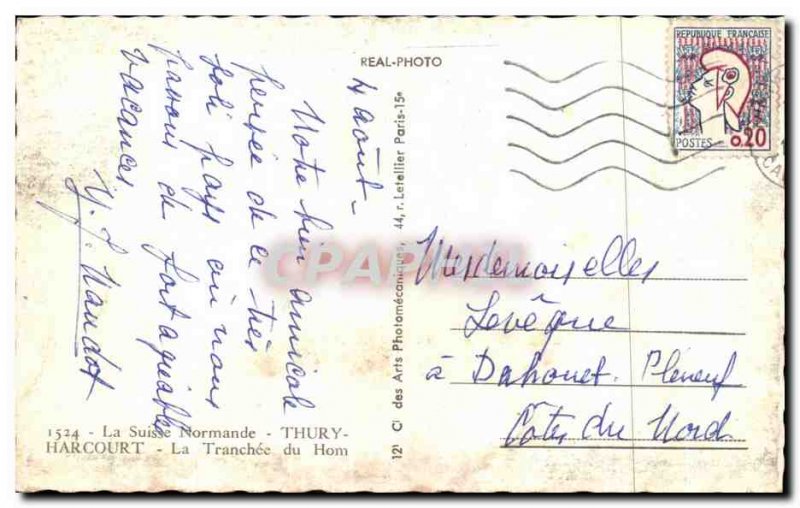 REAL-PHOTO
REPUBLIQUE FRANÇAISE
POSTES 0.20
4 août -
Notre bien amicale
pensée de ce très
joli pays où nous
passons de fort agréables
vacances.
Mesdemoiselles
Levêque
à Dahouet. Pléneuf
Côtes du Nord
Cie des Arts Photomécaniques, 44, r. Letellier Paris-15e
1524 - La Suisse Normande - THURY-
HARCOURT - La Tranchée du Hom
CPARAMA